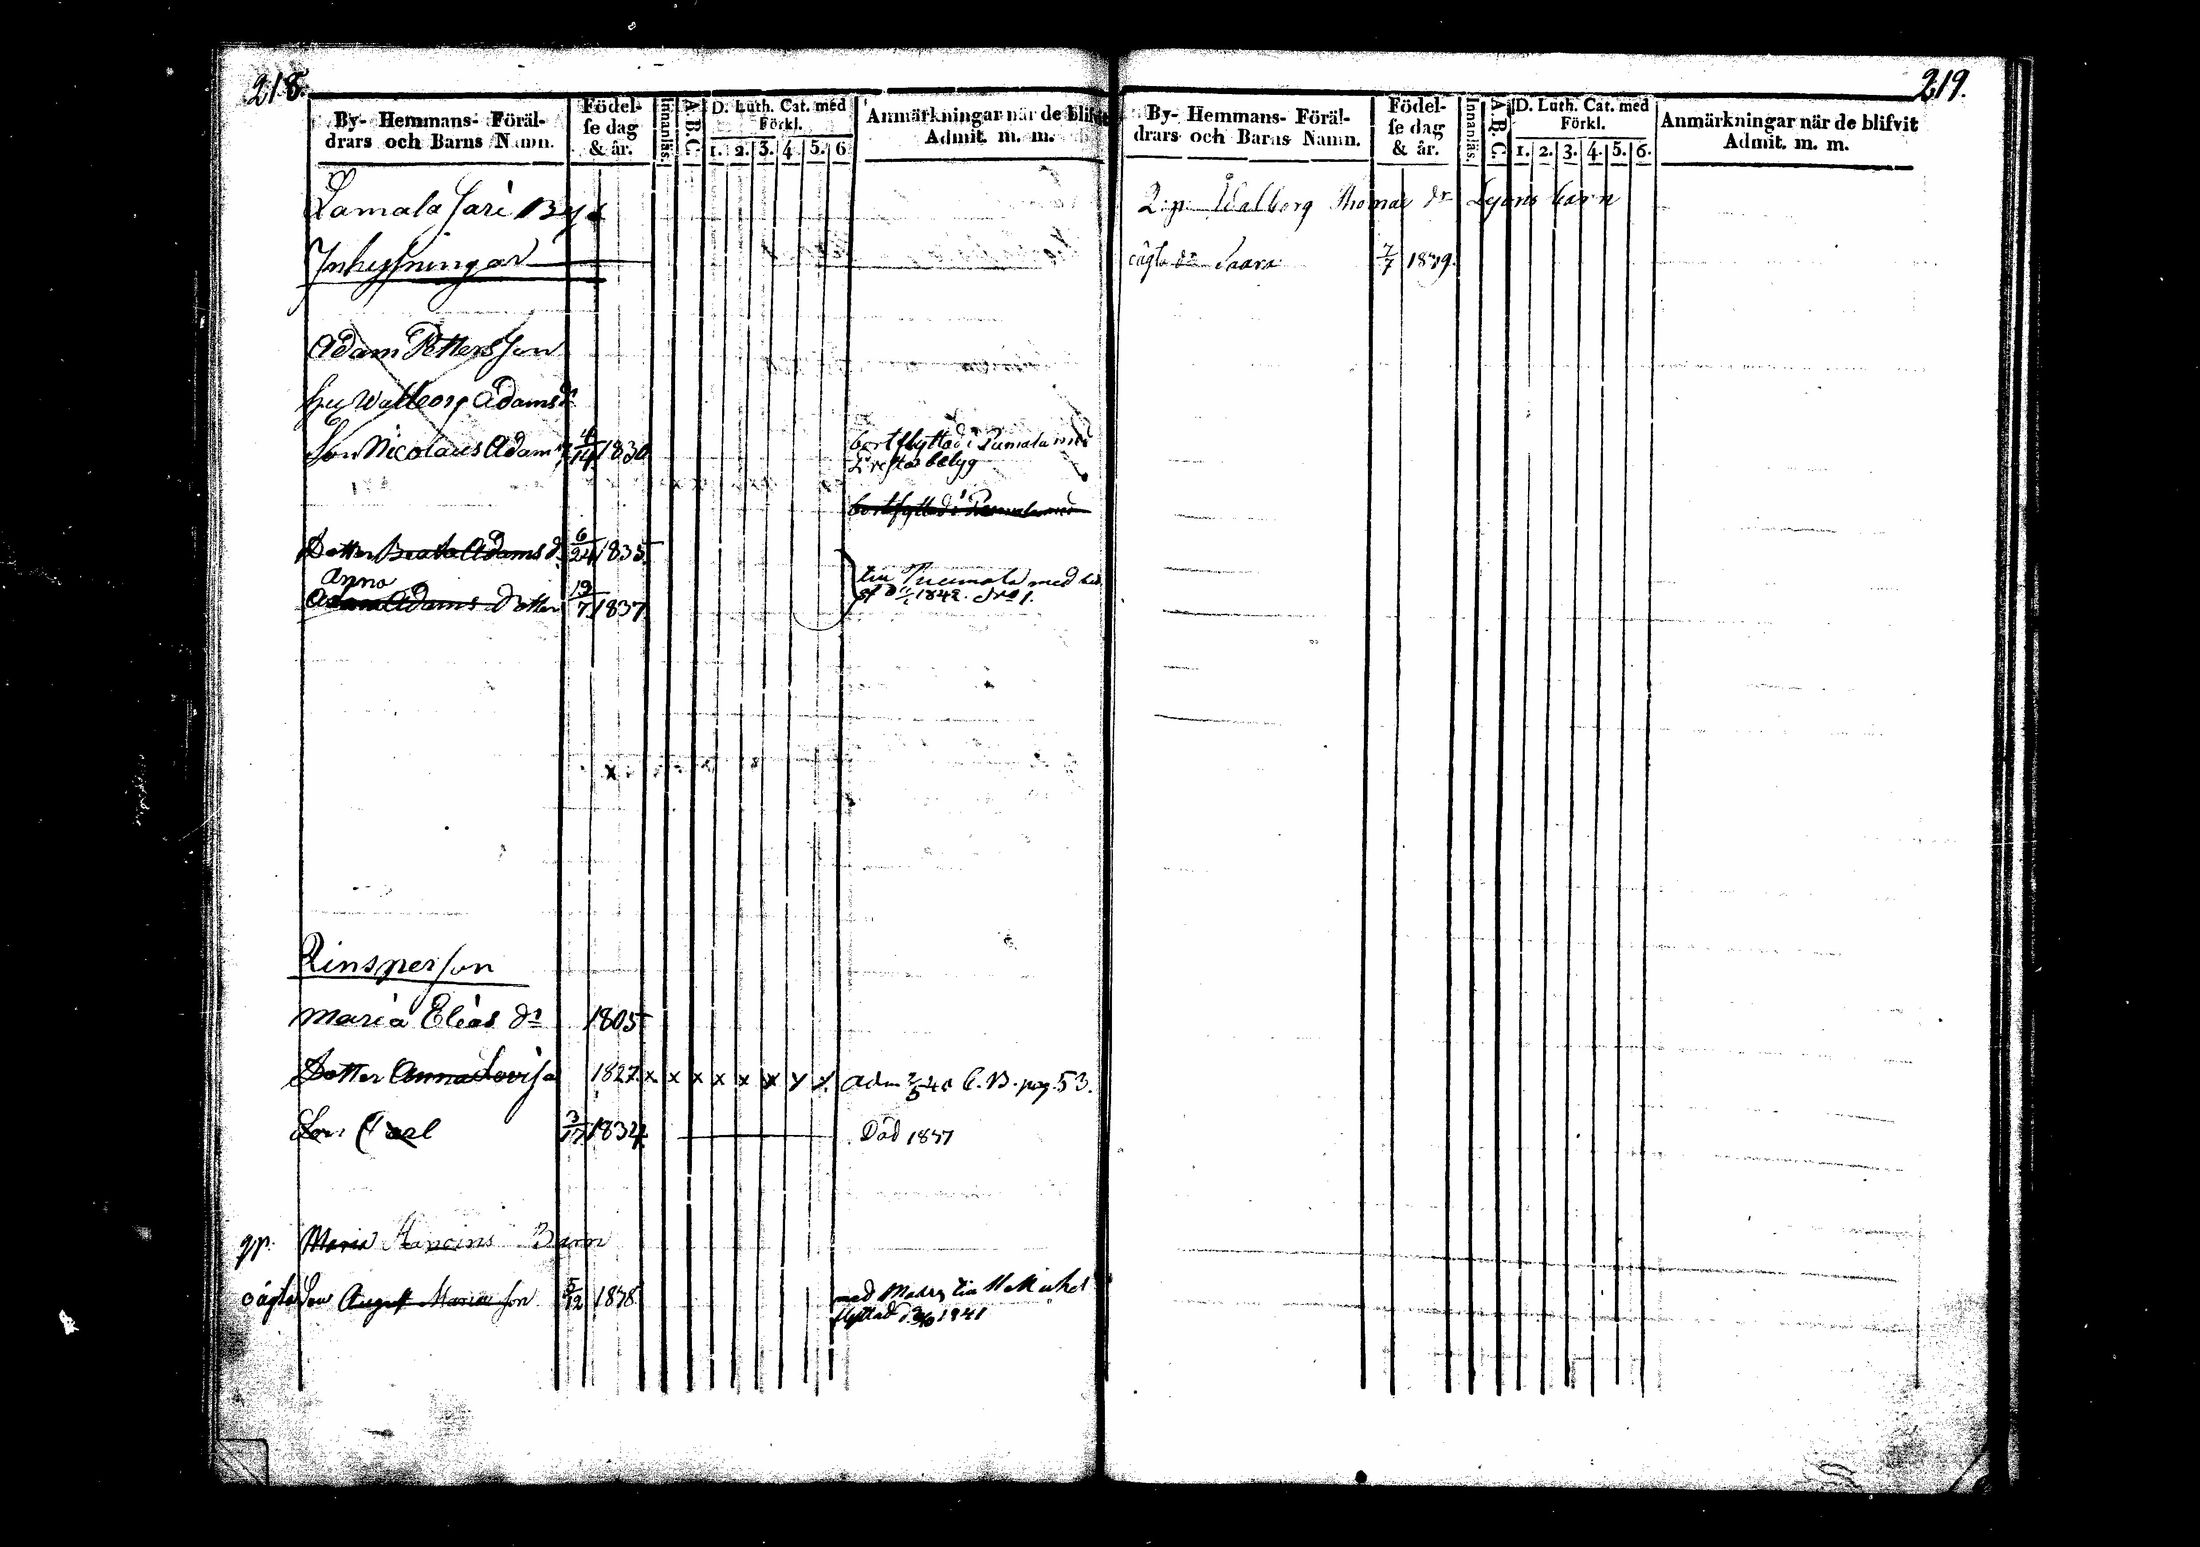 218.
By- Hemmans- Föräl-
drars och Barns Namn.
Födel-
se dag
& år.
Innanläs.
A. B. C.
D. Luth. Cat. med
Förkl.
1. 2. 3. 4. 5. 6
Anmärkningar när de blifvit
Admit. m. m.
Lamala Jari By
Inhysningar
Adam Pettersson
Walborg Adams dr
Son Nicolaus Adam 4/14 1830 bortflyttad i Pumala med
Prestbetyg
bortflyttad i Pumala med
Dotter Beata Adams d. 6/24 1835
Anna
Adams Dotter 19/7 1837
till Puumala med
1842. No 1.
Qinsperson
Maria Elias dr 1805
Dotter Anna Lovisa 1827 x x x x x x x x Adm 2/5 40 C. B. pag. 53.
Son Carl 3/17 1834 Död 1837
qp. Maria Barn
oägta Son August Maria son 5/12 1838 med Modren till St Michel
flyttad 1841
219.
By- Hemmans- Föräl-
drars och Barns Namn.
Födel-
se dag
& år.
Innanläs.
A. B. C.
D. Luth. Cat. med
Förkl.
1. 2. 3. 4. 5. 6.
Anmärkningar när de blifvit
Admit. m. m.
Q: p: Walborg Thomae dr barn
oägta dr Saara 7/7 1839.